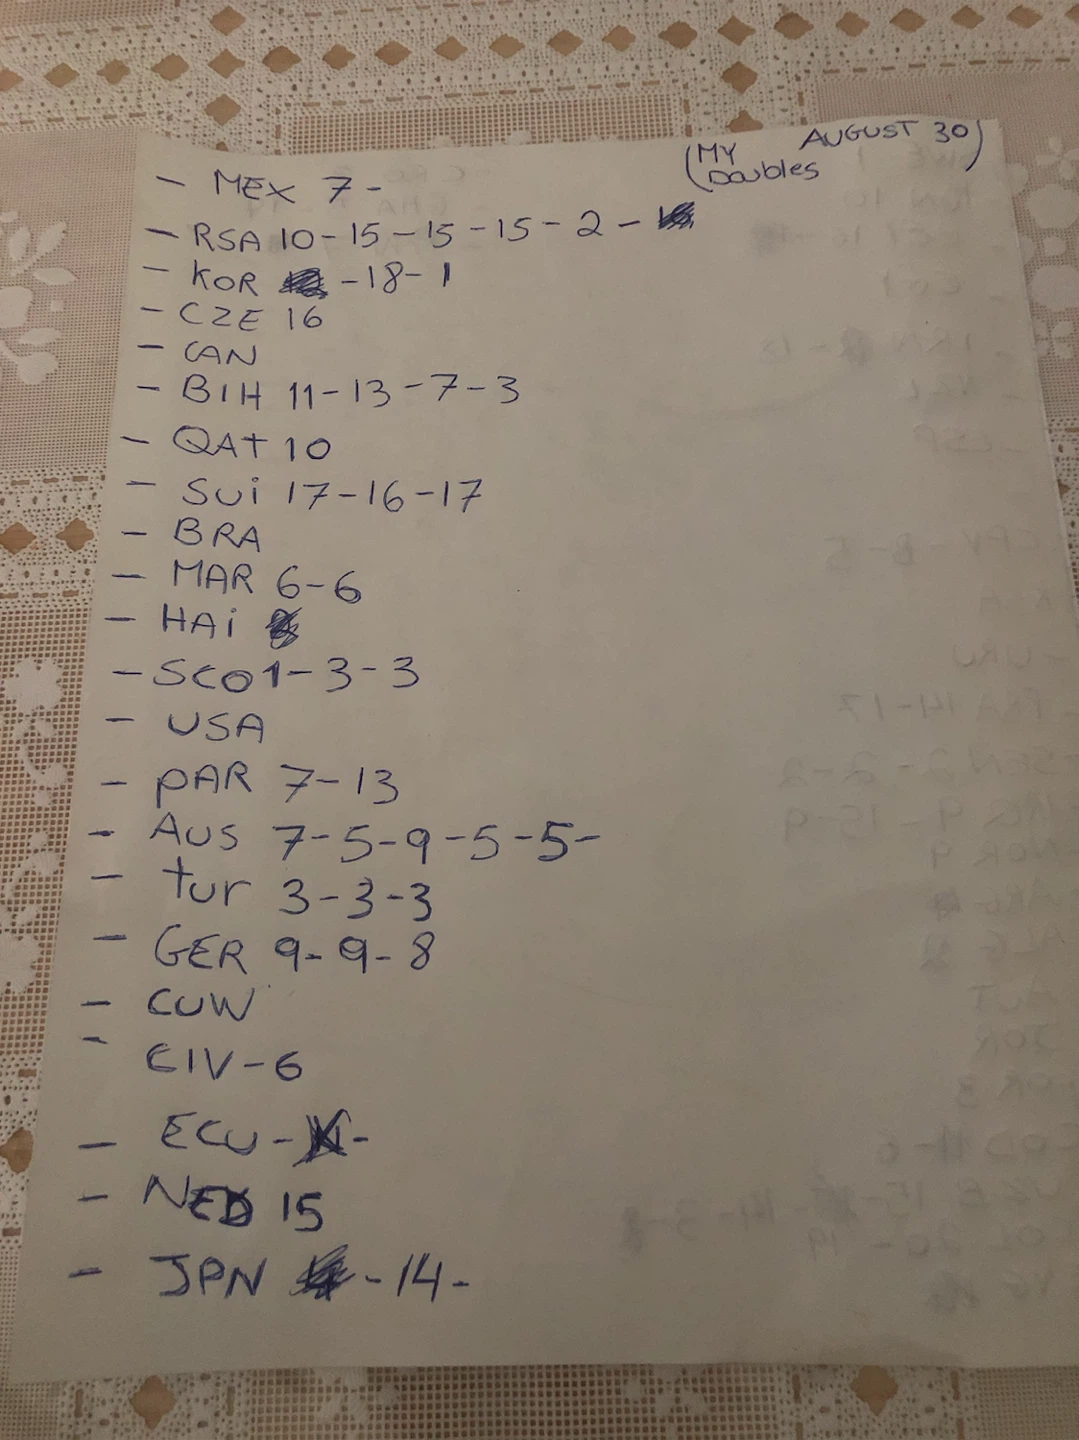 AUGUST 30)
(MY
Doubles
- MEX 7-
- RSA 10-15-15-15-2-
- KOR -18-1
- CZE 16
- CAN
- BIH 11-13-7-3
- QAT 10
- SUi 17-16-17
- BRA
- MAR 6-6
- HAi
- SCO 1-3-3
- USA
- PAR 7-13
- AUS 7-5-9-5-5-
- tur 3-3-3
- GER 9-9-8
- CUW
- CIV-6
- ECU- -
- NED 15
- JPN -14-